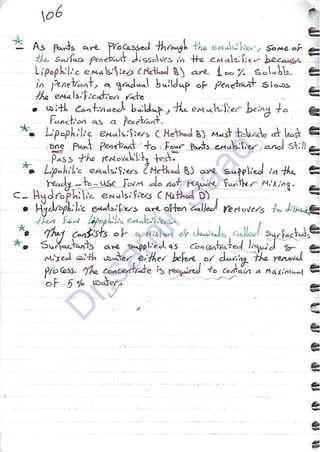 106
- As Parts are Processed through the emulsifier, some of
the surface penetrant dissolves in the emulsifier because
Lipophilic emulsifiers (Method B) are 100% Soluble
in penetrant, a gradual buildup of penetrant slows
the emulsification rate
• with continued buildup, the emulsifier being to
Function as a Penetrant.
• Lipophilic emulsifiers (Method B) Must tolerate at least
one Part Penetrant to Four Parts emulsifier and Still
Pass the removability test.
• Lipohilic emulsifiers (Method B) are supplied in the
ready-to-use Form do not require Further Mixing.
C- Hydrophilic emulsifiers (Method D)
• Hydrophilic emulsifiers are often called removers to
them from Lipophilic emulsifiers.
• They Consists of a mixture of chemicals called Surfactants
• Surfactants are supplied as Concentrated liquid &
Mixed with water either before or during the removal
Process. The Concentrate is required to contain a maximum
of 5% water.